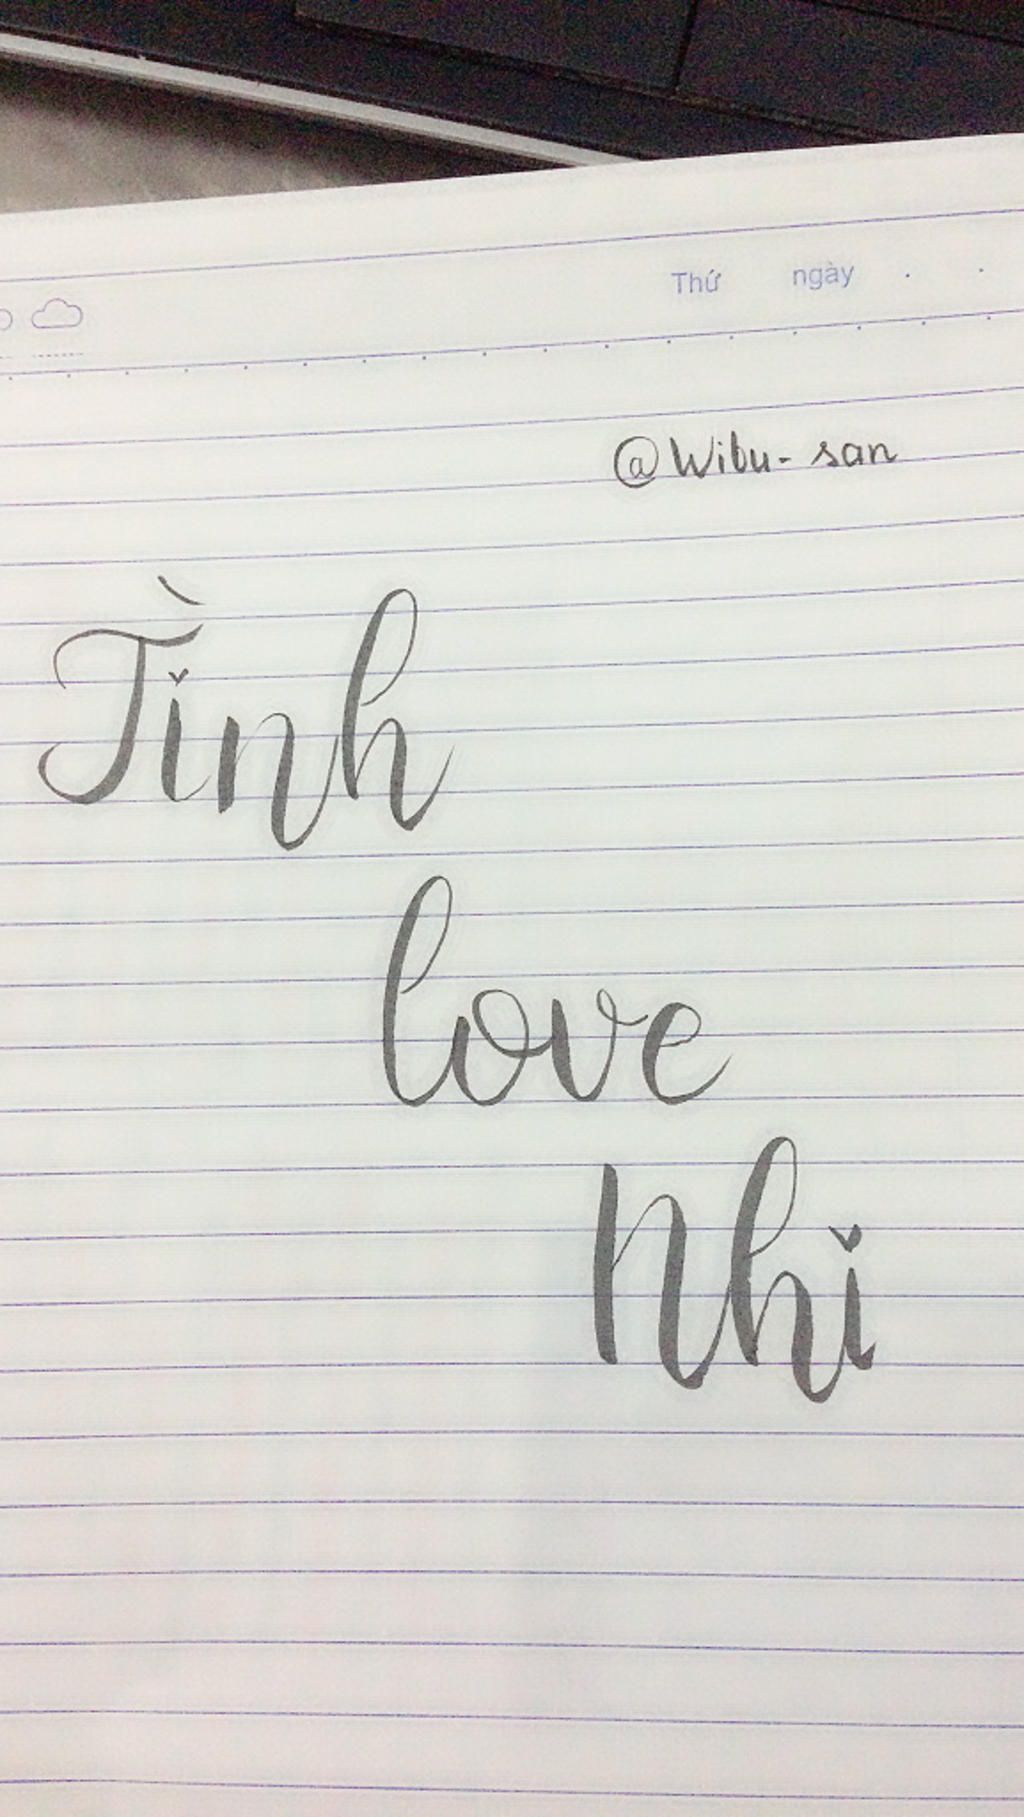 Thứ ngày . .
@Wibu-san
Tình
love
Nhi